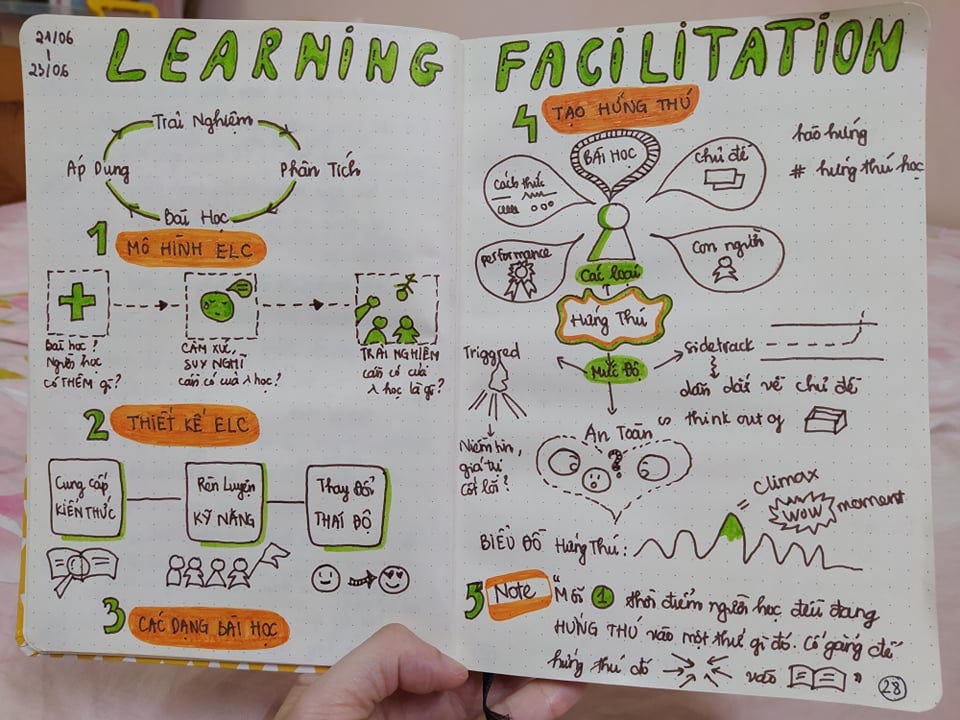 21/06
-
23/06
LEARNING
Trải Nghiệm
Áp Dụng
Phân Tích
Bài Học
1 MÔ HÌNH ELC
Bài học?
Người học
có THÊM gì?
CẢM XÚC,
SUY NGHĨ
cần có của λ học?
TRẢI NGHIỆM
cần có của
λ học là gì?
2 THIẾT KẾ ELC
Cung cấp
KIẾN THỨC
Rèn Luyện
KỸ NĂNG
Thay Đổi
THÁI ĐỘ
3 CÁC DẠNG BÀI HỌC
FACILITATION
4 TẠO HỨNG THÚ
BÀI HỌC
Cách thức
chủ đề
performance
Con người
hào hứng
# hứng thú học
Các loại
Hứng Thú
Mức Độ
Triggred
Niềm tin,
giá trị
cốt lõi?
sidetrack
dẫn dắt về chủ đề
think out of
An Toàn
?
BIỂU ĐỒ Hứng Thú:
= climax
WOW moment
5 Note
"Mỗi 1 thời điểm người học đều đang
HỨNG THÚ vào một thứ gì đó. Cố gắng để
hứng thú đó vào "
28